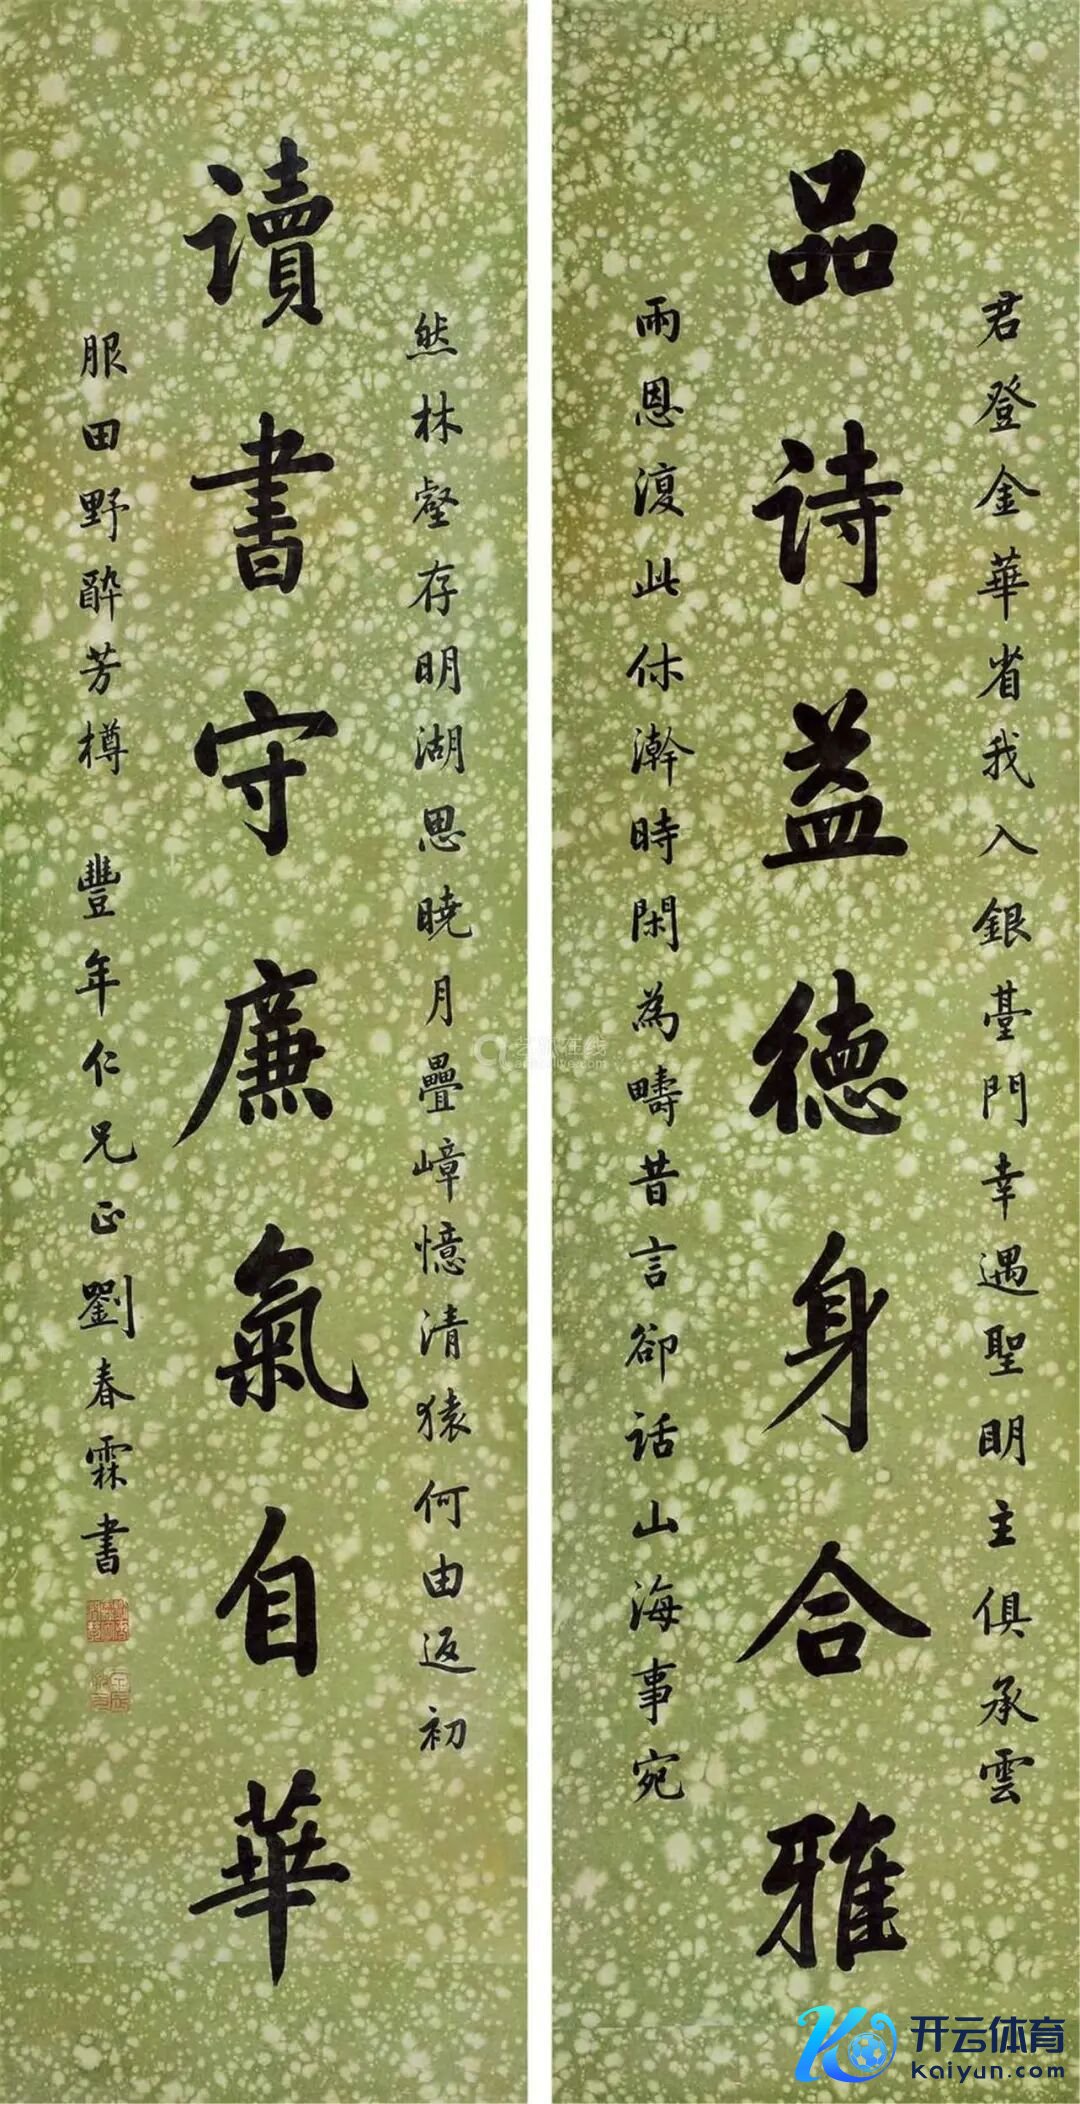 品詩益德身合雅
君登金華省我入銀臺門幸遇聖明主俱承雲
雨恩復此休澣時閑為疇昔言卻話山海事宛
讀書守廉氣自華
然林壑存明湖思曉月疊嶂憶清猿何由返初
服田野醉芳樽 豐年仁兄正 劉春霖書
开云体育
kaiyun.com